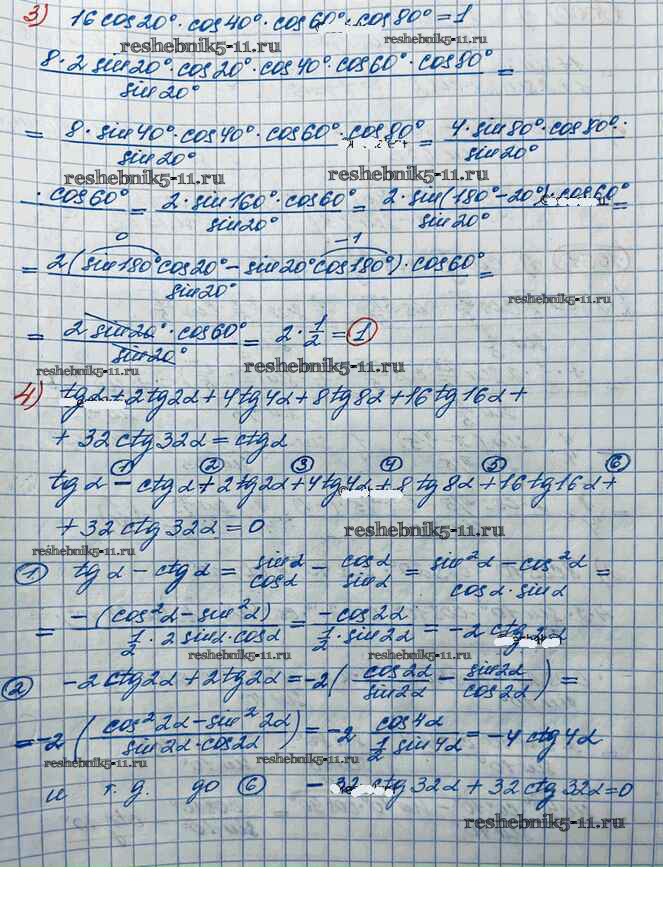 3) 16 cos20°·cos40°·cos60°·cos80°=1
reshebnik5-11.ru
8·2 sin20°·cos20°·cos40°·cos60°·cos80° / sin20° =
= 8·sin40°·cos40°·cos60°·cos80° / sin20° = 4·sin80°·cos80°· / sin20°
reshebnik5-11.ru reshebnik5-11.ru
·cos60° = 2·sin160°·cos60° / sin20° = 2·sin(180°-20°)·cos60° / sin20° =
0 -1
= 2(sin180°cos20°-sin20°cos180°)·cos60° / sin20° =
reshebnik5-11.ru
= 2 sin20°·cos60° / sin20° = 2·1/2 = 1
reshebnik5-11.ru reshebnik5-11.ru
4) tgα+2tg2α+4tg4α+8tg8α+16tg16α+
+ 32ctg32α=ctgα
① ② ③ ④ ⑤ ⑥
tgα-ctgα+2tg2α+4tg4α+8tg8α+16tg16α+
+ 32ctg32α=0
reshebnik5-11.ru
reshebnik5-11.ru
① tgα-ctgα = sinα/cosα - cosα/sinα = sin²α-cos²α / cosα·sinα =
= -(cos²α-sin²α) / 1/2·2sinα·cosα = -cos2α / 1/2·sin2α = -2 ctg2α
reshebnik5-11.ru reshebnik5-11.ru
② -2ctg2α+2tg2α=-2(cos2α/sin2α - sin2α/cos2α) =
=-2(cos²2α-sin²2α / sin2α·cos2α) = -2 cos4α / 1/2 sin4α = -4ctg4α
reshebnik5-11.ru reshebnik5-11.ru
и т.д. до ⑥ -32ctg32α+32ctg32α=0
reshebnik5-11.ru